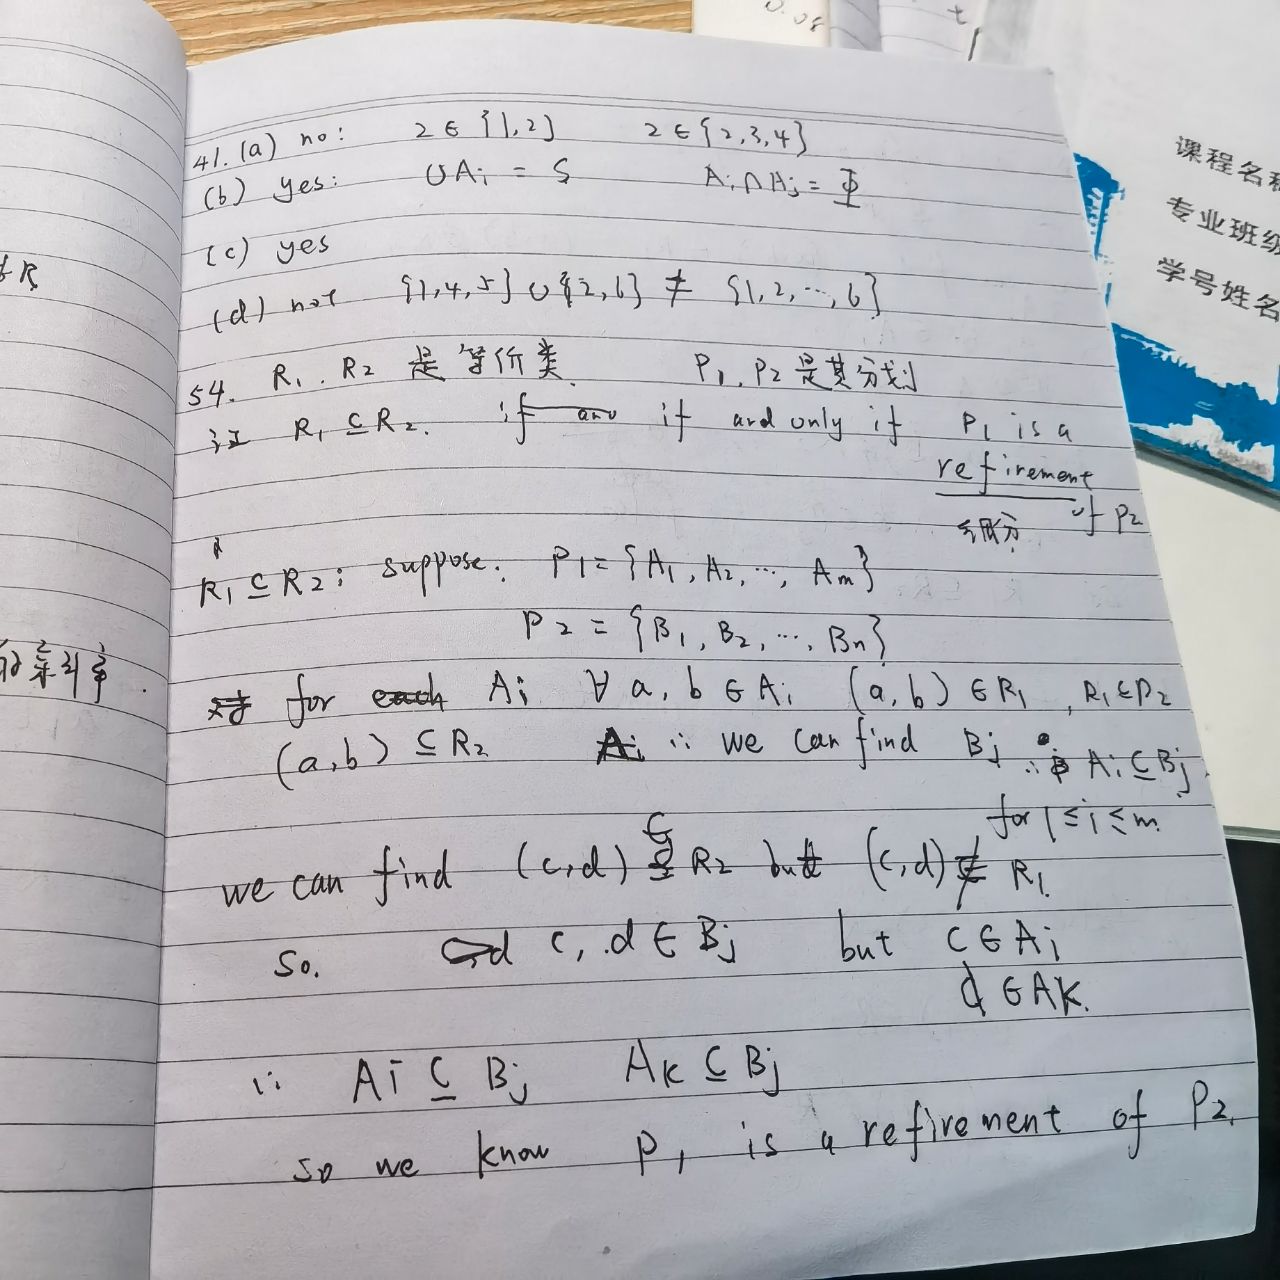 0.08
t
课程名称
专业班级
学号姓名
R
41. (a) no: 2 ∈ {1,2} 2 ∈ {2,3,4}
(b) yes: ∪Ai = S Ai ∩ Aj = Φ
(c) yes
(d) not {1,4,5} ∪ {2,6} ≠ {1,2,…,6}
54. R1. R2 是等价类. P1. P2 是其分划
证 R1 ⊆ R2. if and only if P1 is a
refirement
of P2
细分
R1 ⊆ R2: suppose: P1 = {A1, A2, …, Am}
P2 = {B1, B2, …, Bn}
for Ai ∀ a, b ∈ Ai (a, b) ∈ R1, R1 ⊆ R2
(a, b) ⊆ R2 ∴ we can find Bj ∴ Ai ⊆ Bj.
for 1 ≤ i ≤ m.
we can find (c,d) ∈ R2 but (c,d) ∉ R1.
So. c, d ∈ Bj but c ∈ Ai
d ∈ AK.
∵ Ai ⊆ Bj AK ⊆ Bj
so we know P1 is a refirement of P2.